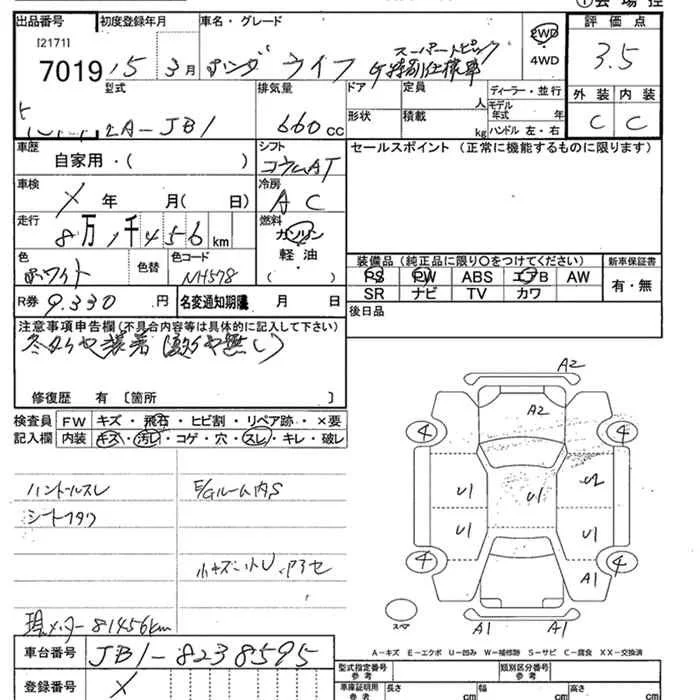 ①会場控
出品番号 初度登録年月 車名・グレード 評価点
[2171]
7019 15 3月 ホンダ ライフ スーパートピック
G特別仕様車
2WD
4WD
3.5
型式 排気量 ドア 定員 人 ディーラー・並行 外装 内装
LA-JB1 660cc 形状 積載 kg モデル年式 年
ハンドル 左・右 C C
車歴 自家用・( ) シフト コラムAT セールスポイント (正常に機能するものに限ります)
車検 X 年 月(日) 冷房 AC
走行 8万1千456km 燃料 ガソリン
軽油・
( )
色 ホワイト 色替 色コード NH578
装備品 (純正品に限り○をつけてください) 新車保証書
PS PW ABS エアB AW 有・無
SR ナビ TV カワ
R券 9.330円 名変通知期限 月 日 後日品
注意事項申告欄(不具合内容等は具体的に記入して下さい)
冬タイヤ装着
修復歴 有 〔箇所 〕
検査員 FW キズ・飛石・ヒビ割・リペア跡・×要
記入欄 内装 キズ・汚れ・コゲ・穴・スレ・キレ・破レ
ハンドルスレ E/Gルーム内S
シートフタワ
小キズ・小U
現メーター81456km
A2
A2
4 4
U1 U1 U2
U1 U1
4 4
A1
A1 A1
スペア
A-キズ E-エクボ U-凹み W-補修跡 S-サビ C-腐食 XX-交換済
車台番号 JB1-8238595
登録番号 X
型式指定番号 参考 類別区分番号 参考
車庫証明用 参考 長さ cm 幅 cm 高さ cm